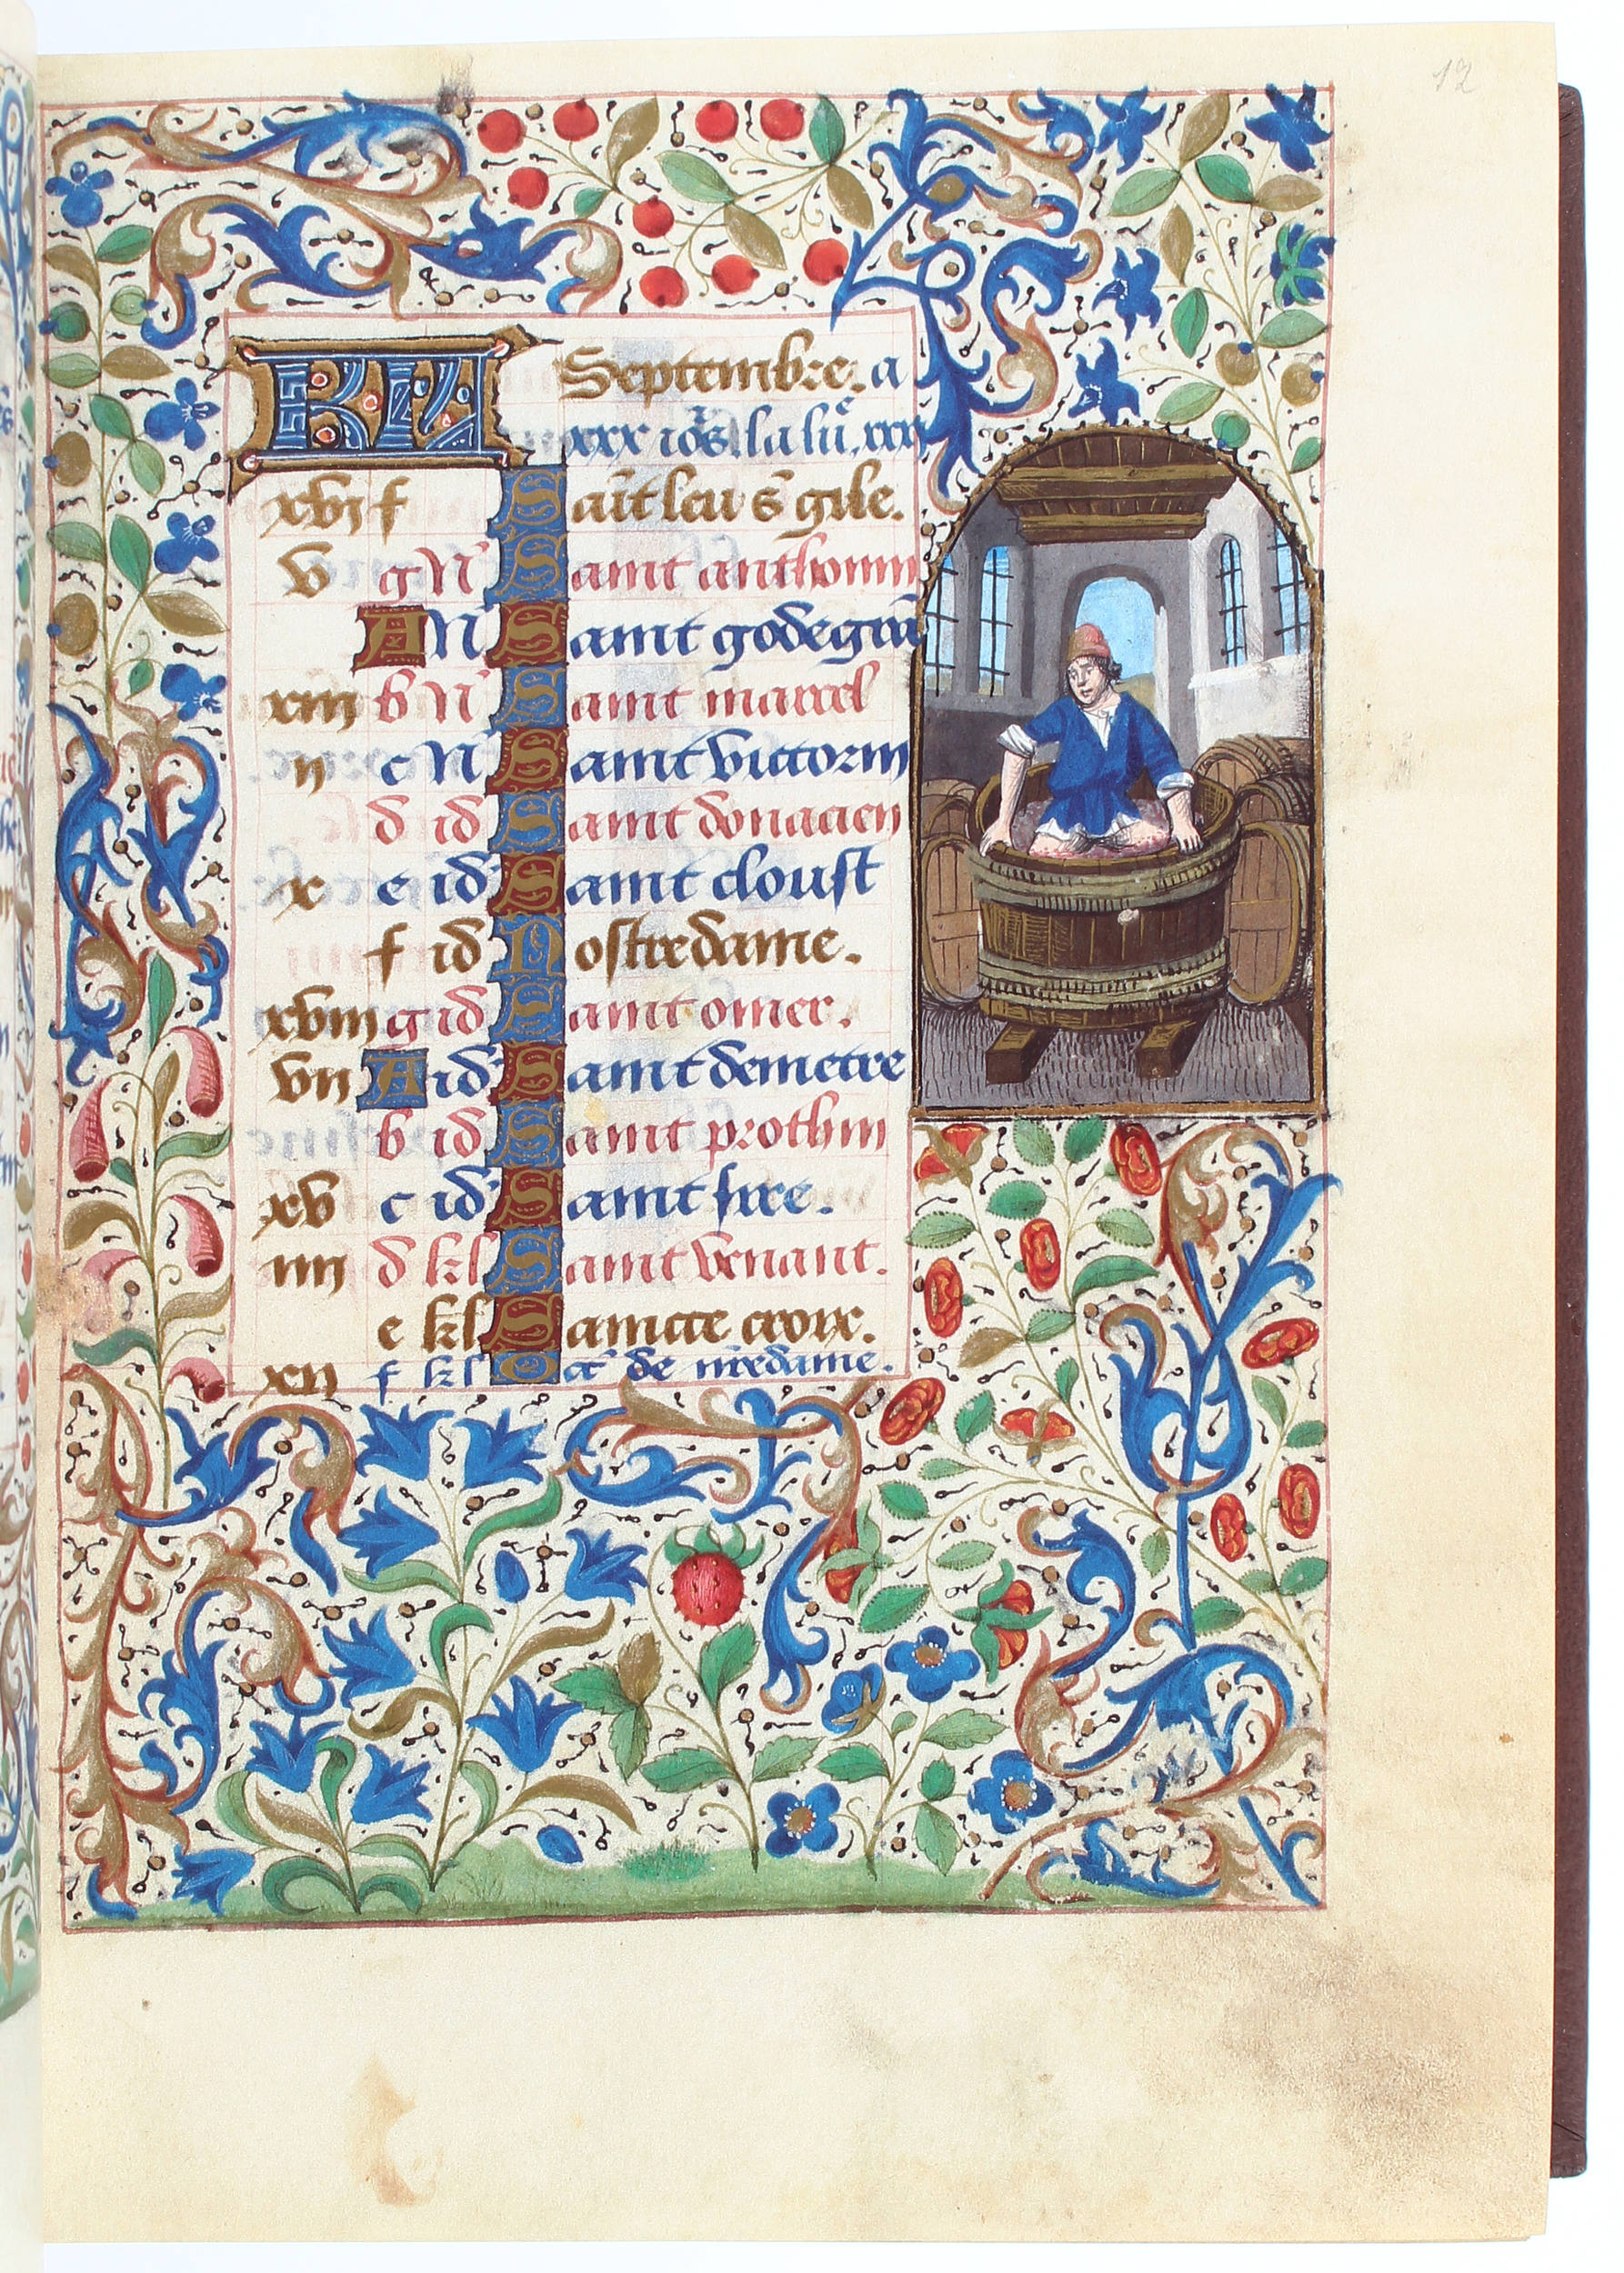 12
KL Septembre. a
xxx iors. la lune. xxx
xvi f Saint leu s gile.
v g N Saint anthonin
A N Saint godegran
xiii b N Saint marcel
ii c N Saint victorin
d id Saint donacien
x e id Saint cloust
f id Nostredame.
xviii g id Saint omer.
vii A id Saint demetre
b id Saint prothin
xv c id Saint sire.
iiii d kl Saint venant.
e kl Saincte croix.
xii f kl Oct de nredame.